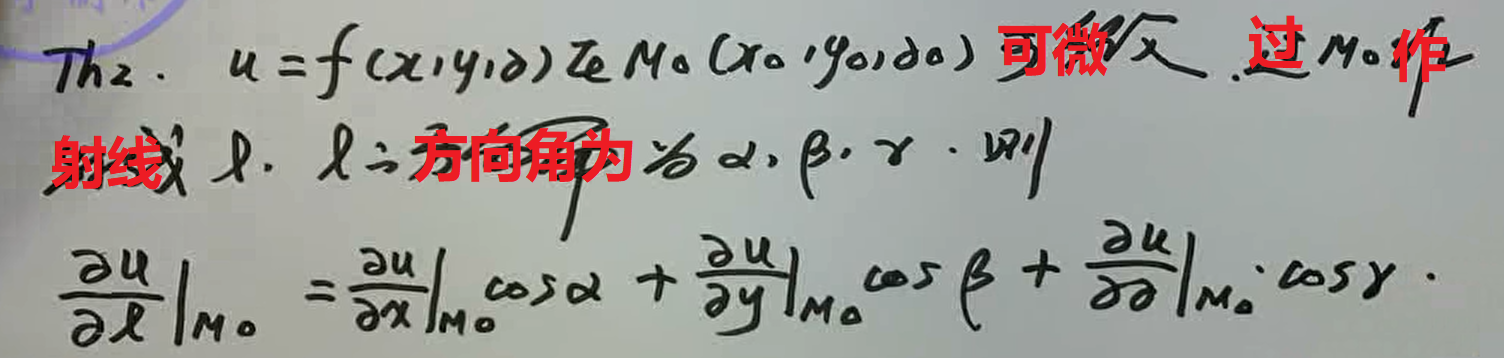 Th2. u=f(x,y,z)在M₀(x₀,y₀,z₀)可微. 过M₀作
射线l. l之方向角为α,β,γ. 则
∂u/∂l|M₀ = ∂u/∂x|M₀ cosα + ∂u/∂y|M₀ cosβ + ∂u/∂z|M₀·cosγ.